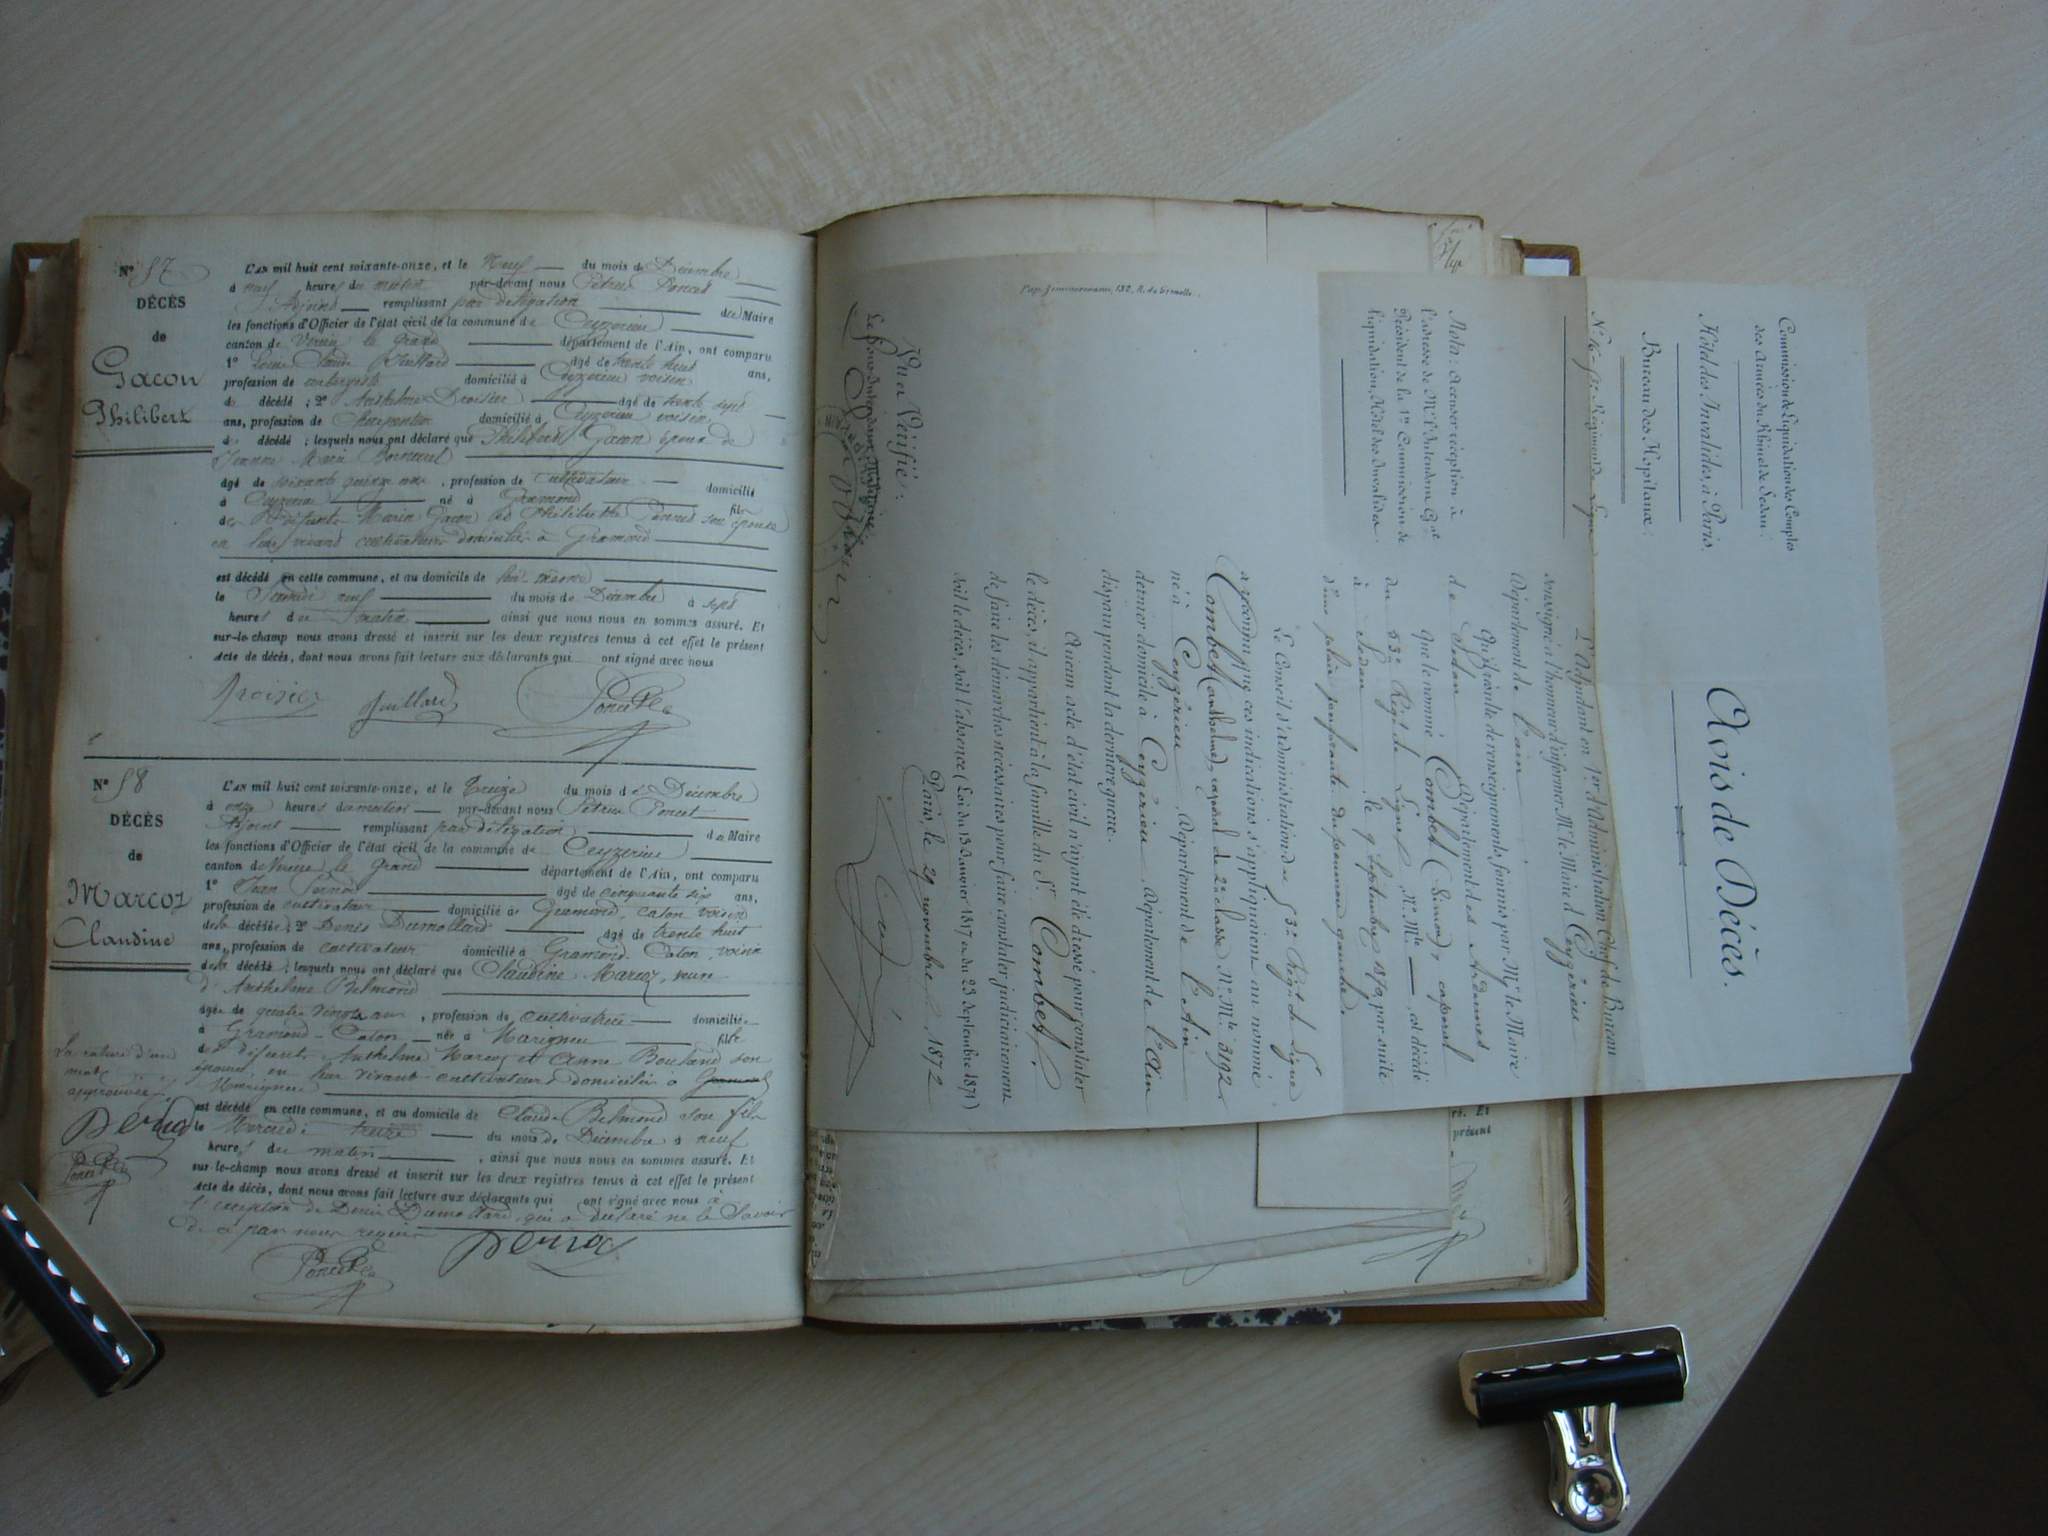 N° 57
DÉCÈS
de
Gacon
Philibert
L'AN mil huit cent soixante-onze, et le Neuf du mois de Décembre
à neuf heures du matin par-devant nous Pétrus Poncet
Adjoint remplissant par délégation du Maire
les fonctions d'Officier de l'état civil de la commune de Ceyzerieu
canton de Virieu le grand département de l'Ain, ont comparu
1° Claude Juillard âgé de trente huit ans,
profession de domicilié à Ceyzerieu voisin
du décédé ; 2° Anthelme Droisier âgé de trente sept
ans, profession de Charpentier domicilié à Ceyzerieu voisin
du décédé ; lesquels nous ont déclaré que Philibert Gacon époux de
Jeanne Marie
âgé de soixante quinze ans, profession de cultivateur domicilié
à Ceyzerieu né à Gramond fils
des défunts Marin Gacon et Philiberthe son épouse
en leur vivant cultivateurs domiciliés à Gramond
est décédé en cette commune, et au domicile de
le Samedi neuf du mois de Décembre à sept
heures du matin, ainsi que nous nous en sommes assuré. Et
sur-le champ nous avons dressé et inscrit sur les deux registres tenus à cet effet le présent
acte de décès, dont nous avons fait lecture aux déclarants qui ont signé avec nous
Droisier Juillard Poncet
N° 58
DÉCÈS
de
Marcoz
Claudine
L'AN mil huit cent soixante-onze, et le Treize du mois de Décembre
à onze heures du matin par-devant nous Pétrus Poncet
Adjoint remplissant par délégation du Maire
les fonctions d'Officier de l'état civil de la commune de Ceyzerieu
canton de Virieu le Grand département de l'Ain, ont comparu
1° Jean Pernod âgé de cinquante six ans,
profession de cultivateur domicilié à Gramond, Caton, voisin
de la décédée ; 2° Denis Dumollard âgé de trente huit
ans, profession de cultivateur domicilié à Gramond Caton, voisin
de la décédé ; lesquels nous ont déclaré que Claudine Marcoz, veuve
d'Anthelme Belmond
âgée de quatre vingts ans, profession de cultivatrice domiciliée
à Gramond-Caton née à Marignieu fille
des défunts Anthelme Marcoz et Anne Bouland son
épouse, en leur vivant cultivateurs domiciliés à Gramond
Marignieu
La rature d'un
mot
approuvée
Pernod
Poncet
est décédé en cette commune, et au domicile de Claude Belmond son fils
le Mercredi treize du mois de Décembre à neuf
heures du matin, ainsi que nous nous en sommes assuré. Et
sur le-champ nous avons dressé et inscrit sur les deux registres tenus à cet effet le présent
acte de décès, dont nous avons fait lecture aux déclarants qui ont signé avec nous à
l'exception de Denis Dumollard qui a déclaré ne le savoir
de ce par nous requis
Poncet Pernod
Commission de Liquidation des Comptes
des Armées du Rhin et de Sedan.
Hôtel des Invalides, à Paris.
Bureau des Hôpitaux.
Régiment de Ligne
Nota: Accuser réception à
l'adresse de Mr. l'Intendant Gal
Président de la 1re Commission de
liquidation, Hôtel des Invalides.
Avis de Décès.
L'Adjudant en 1er d'Administration Chef de Bureau
soussigné a l'honneur d'informer Mr. le Maire d Ceyzérieu
Département de l'ain
Qu'il résulte de renseignements fournis par Mr. le Maire
de Sedan Département des Ardennes
que le nommé Combet (Simon), caporal
du 53e Régt de Ligne N° Mle est décédé
à Sedan le 9 Septembre 1870, par suite
d'une plaie pénétrante du poumon gauche.
Le Conseil d'administration du 53e Régt de Ligne
a répondu que ces indications s'appliquaient au nommé
Combet (Anthelme), caporal de 2e classe N° Mle 3192
né à Ceyzérieu Département de l'Ain
dernier domicile à Ceyzérieu Département de l'Ain
disparu pendant la dernière guerre.
Aucun acte d'état civil n'ayant été dressé pour constater
le décès, il appartient à la famille du Sr. Combet
de faire les démarches nécessaires pour faire constater judiciairement
soit le décès, soit l'absence (Loi du 13 Janvier 1817 et du 23 Septembre 1871)
Paris, le 29 novembre 1872
Vu et Vérifié:
Le Sous-Intendant Militaire,
Pap. Zimmermann, 132, R. de Grenelle.
ré. Et
présent